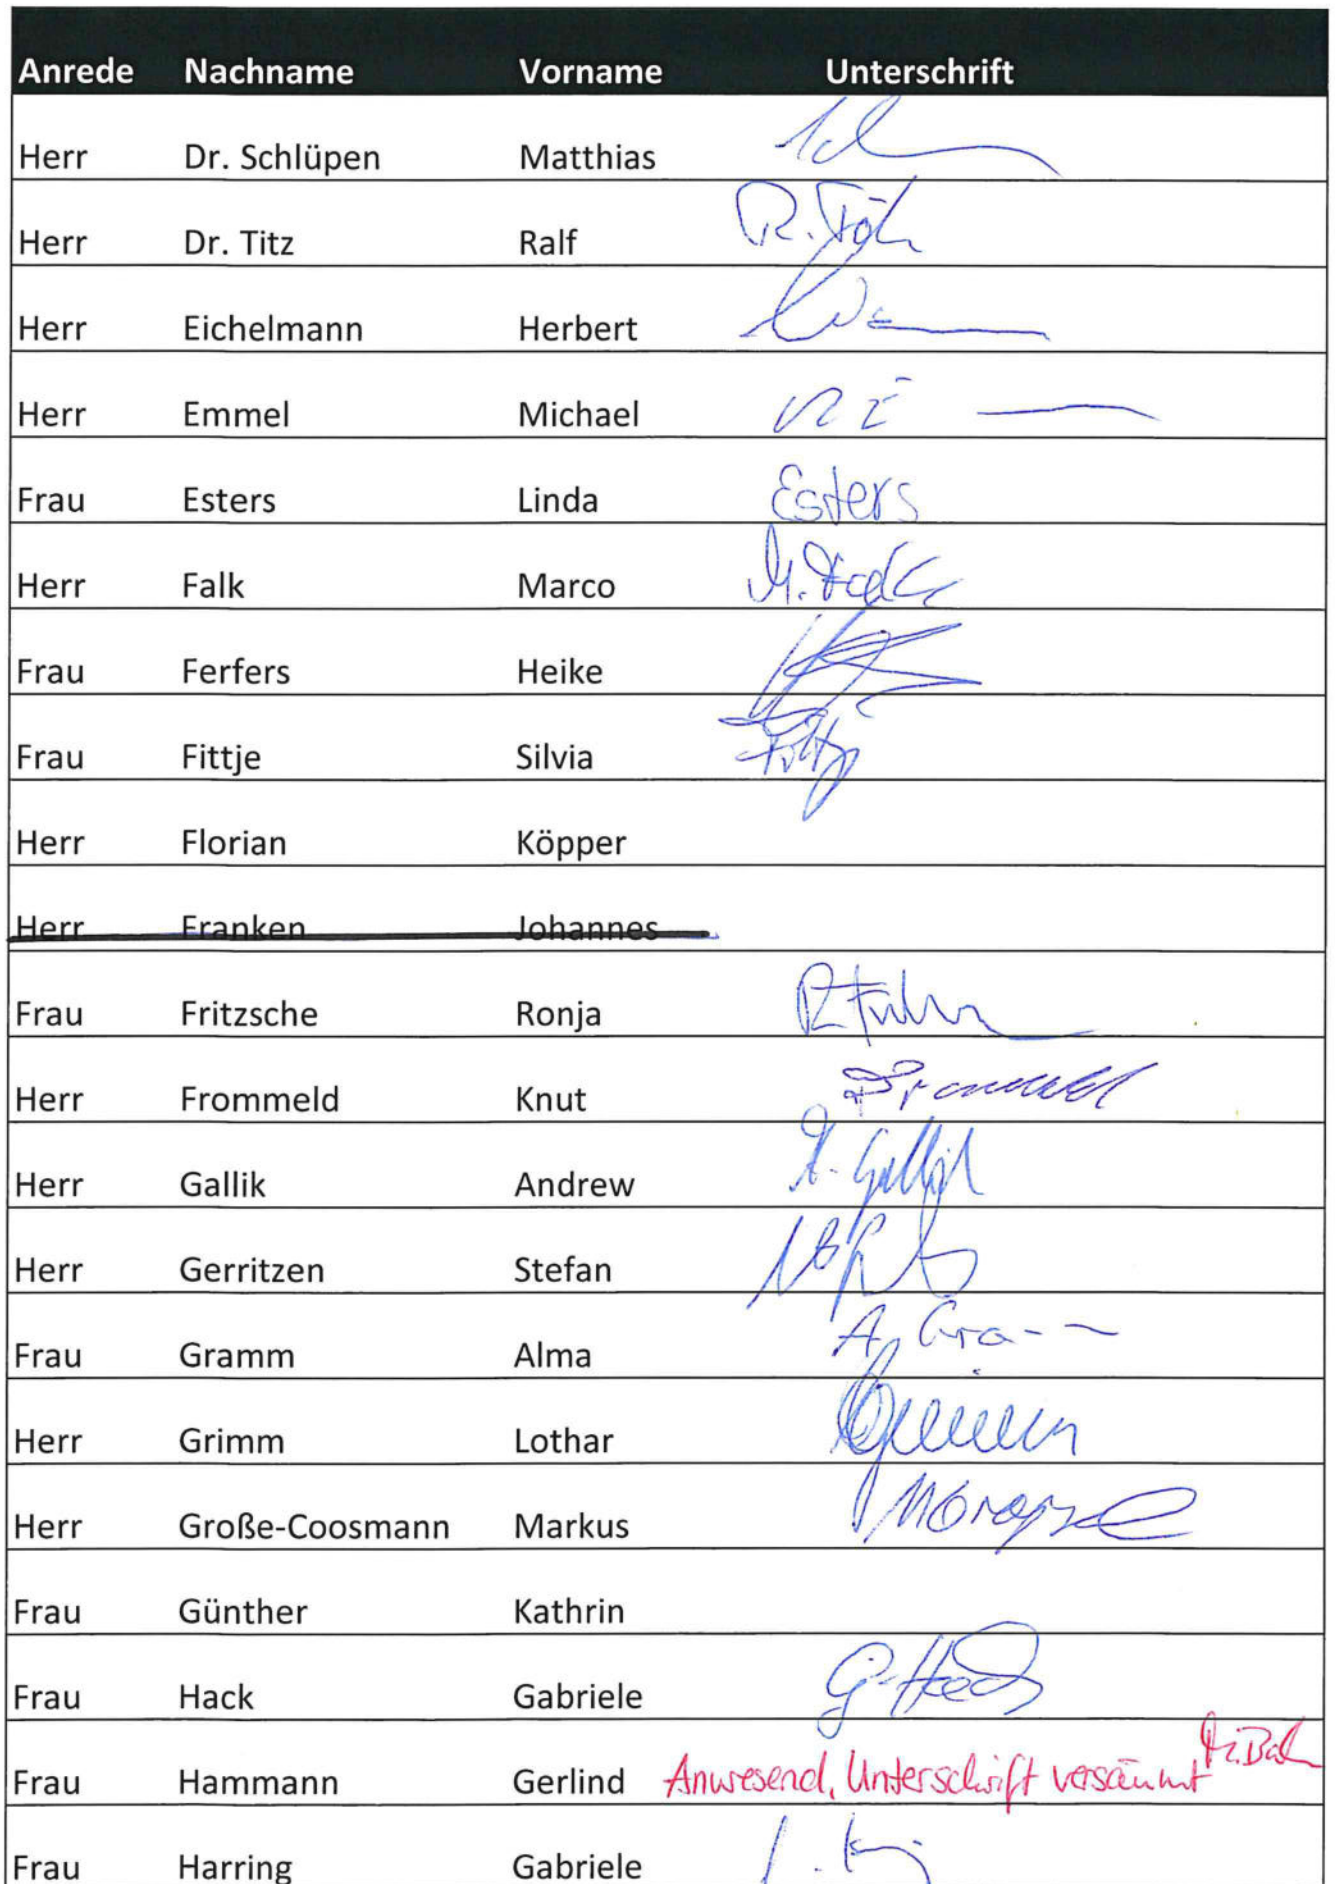 Anrede Nachname Vorname Unterschrift
Herr Dr. Schlüpen Matthias
Herr Dr. Titz Ralf
Herr Eichelmann Herbert
Herr Emmel Michael
Frau Esters Linda Esters
Herr Falk Marco M. Falk
Frau Ferfers Heike
Frau Fittje Silvia
Herr Florian Köpper
Herr Franken Johannes
Frau Fritzsche Ronja
Herr Frommeld Knut Frommeld
Herr Gallik Andrew A. Gallik
Herr Gerritzen Stefan
Frau Gramm Alma
Herr Grimm Lothar
Herr Große-Coosmann Markus
Frau Günther Kathrin
Frau Hack Gabriele G. Hack
Frau Hammann Gerlind Anwesend, Unterschrift versäumt
Frau Harring Gabriele